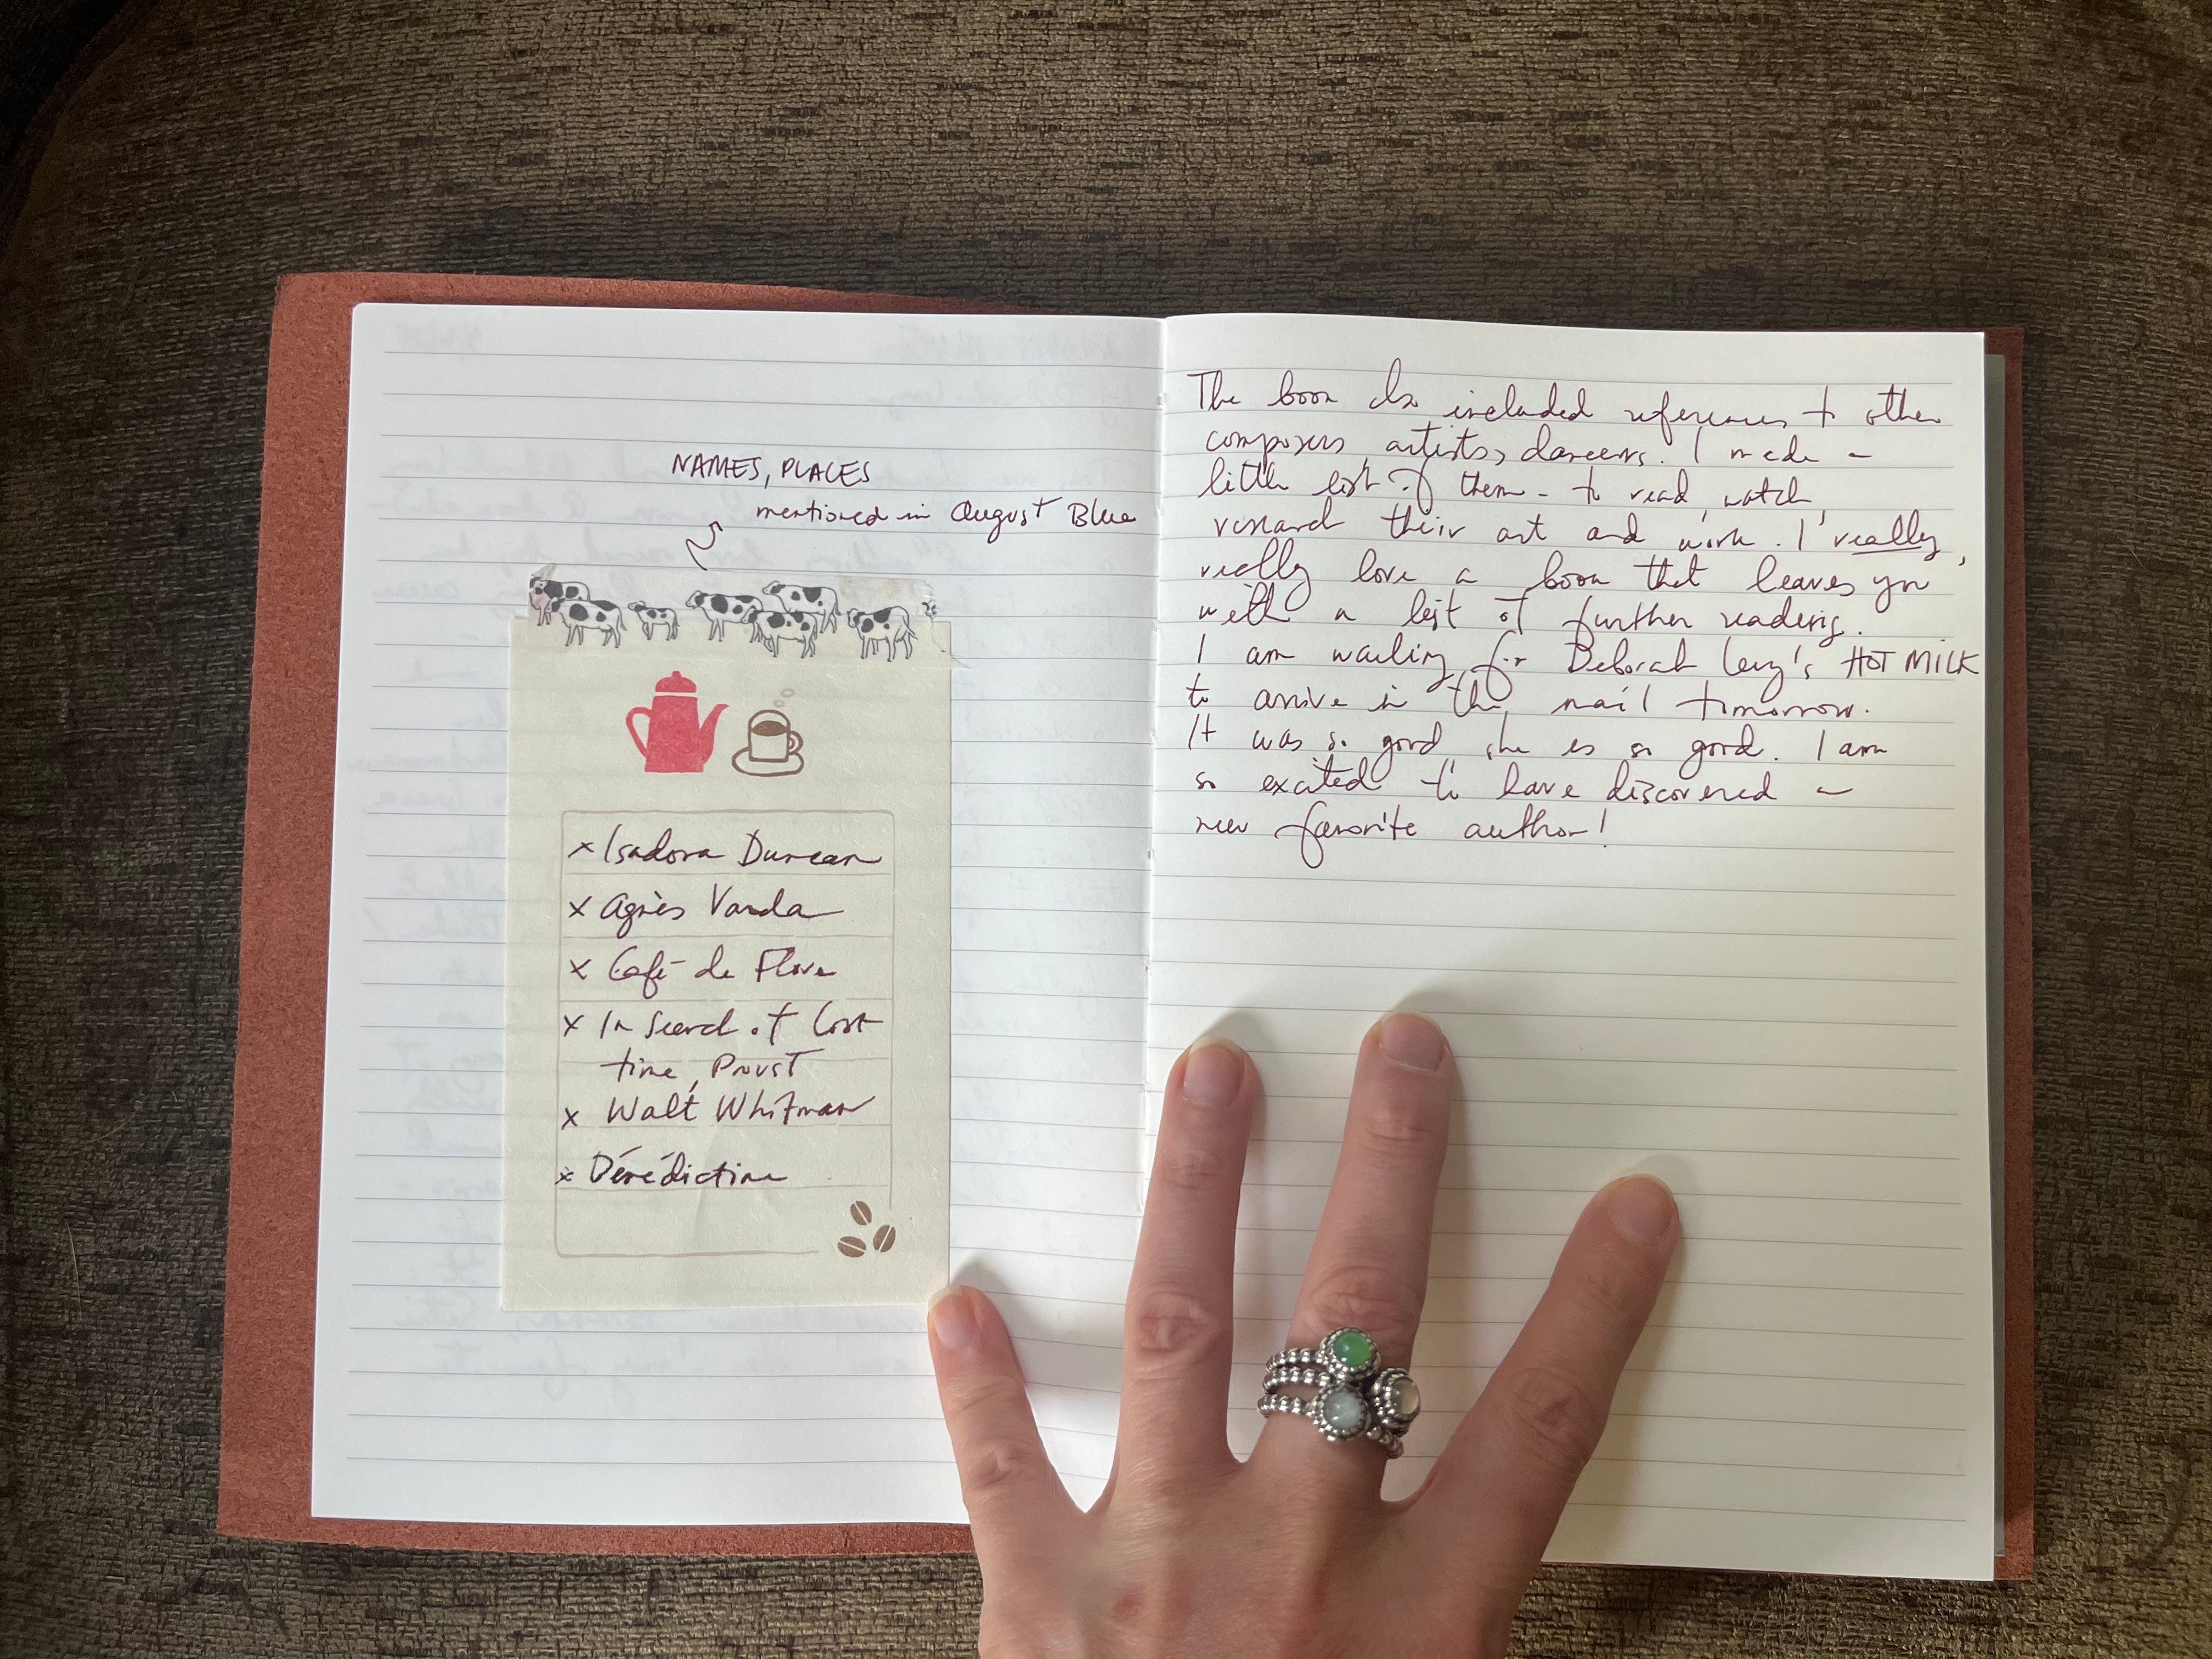 NAMES, PLACES
mentioned in August Blue
× Isadora Duncan
× Agnès Varda
× Café de Flore
× In Search of Lost
time, Proust
× Walt Whitman
× Bénédictine
The book also included references to other
composers, artists, dancers. I made a
little list of them - to read, watch,
research their art and work. I really,
really love a book that leaves you
with a list of further reading.
I am waiting for Deborah Levy's HOT MILK
to arrive in the mail tomorrow.
It was so good, she is so good. I am
so excited to have discovered a
new favorite author!